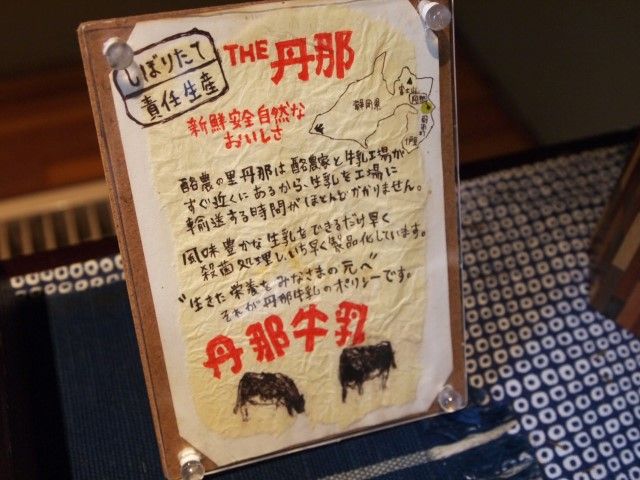 しぼりたて
責任生産
THE 丹那
新鮮安全自然な
おいしさ
富士山
静岡県
伊豆
酪農の里丹那は酪農家と牛乳工場が
すぐ近くにあるから、生乳を工場に
輸送する時間がほとんどかかりません。
風味豊かな生乳をできるだけ早く
殺菌処理し、いち早く製品化しています。
"生きた栄養をみなさまの元へ"
それが丹那牛乳のポリシーです。
丹那牛乳